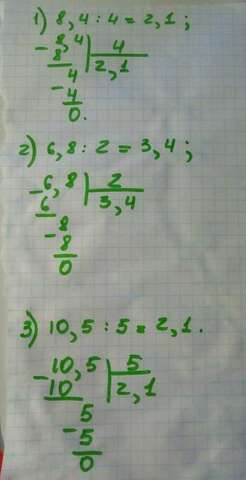 1) 8,4 : 4 = 2,1 ;
- 8,4 | 4
8 | 2,1
4
- 4
0.
2) 6,8 : 2 = 3,4 ;
- 6,8 | 2
6 | 3,4
- 8
8
0
3) 10,5 : 5 = 2,1 .
- 10,5 | 5
10 | 2,1
5
- 5
0